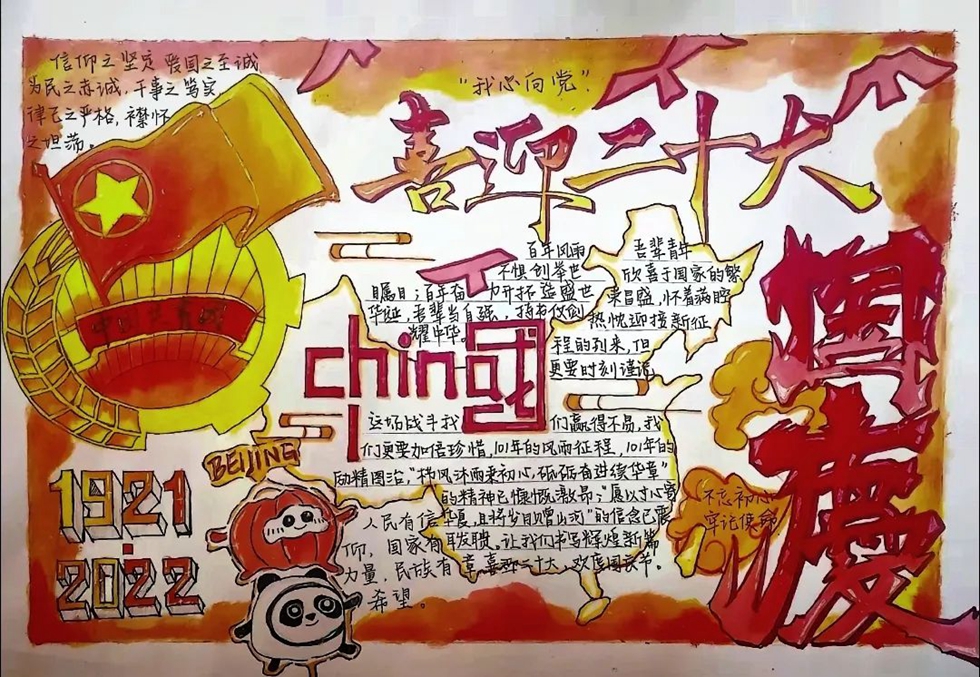 信仰之坚定 爱国之至诚
为民之赤诚,干事之笃实
律己之严格,襟怀
之坦荡。
“我心向党”
喜迎二十大
国慶
百年风雨
不惧创举世
瞩目;百年奋力开拓
华诞,吾辈当自强,
耀中华。
吾辈青年
欣喜于国家的繁
荣昌盛,怀着满腔
热忱迎接新征
程的到来,但
更要时刻谨记
china
中国共青团
这场战斗我们赢得不易,我
们更要加倍珍惜,101年的风雨征程,101年的
励精图治,“栉风沐雨来初心,砥砺奋进续华章”
的精神已慷慨激昂;“愿以寸心寄
华夏,且将岁月赠山河”的信念已震
聋发聩,让我们书写辉煌新篇
章,喜迎二十大,欢度国庆节。
BEIJING
1921
·
2022
人民有信
仰,国家有
力量,民族有
希望。
不忘初心
牢记使命